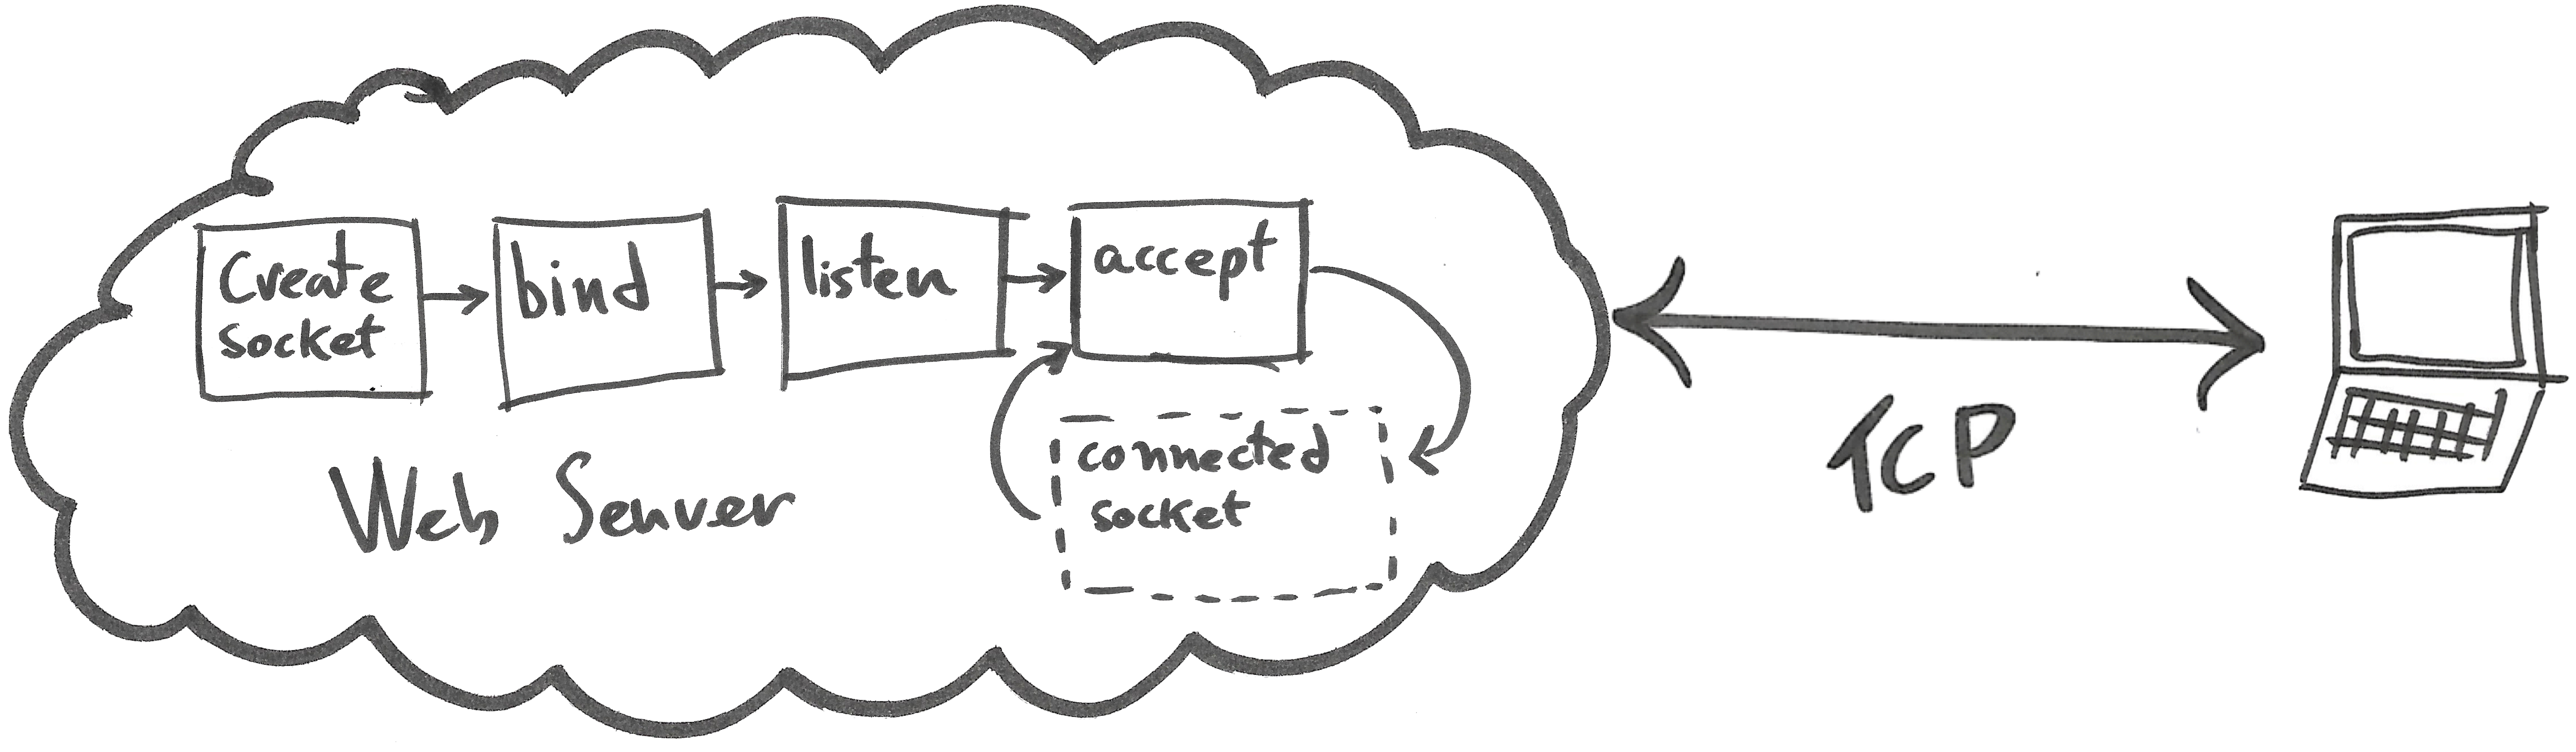 Create
socket
bind
listen
accept
connected
socket
Web Server
TCP